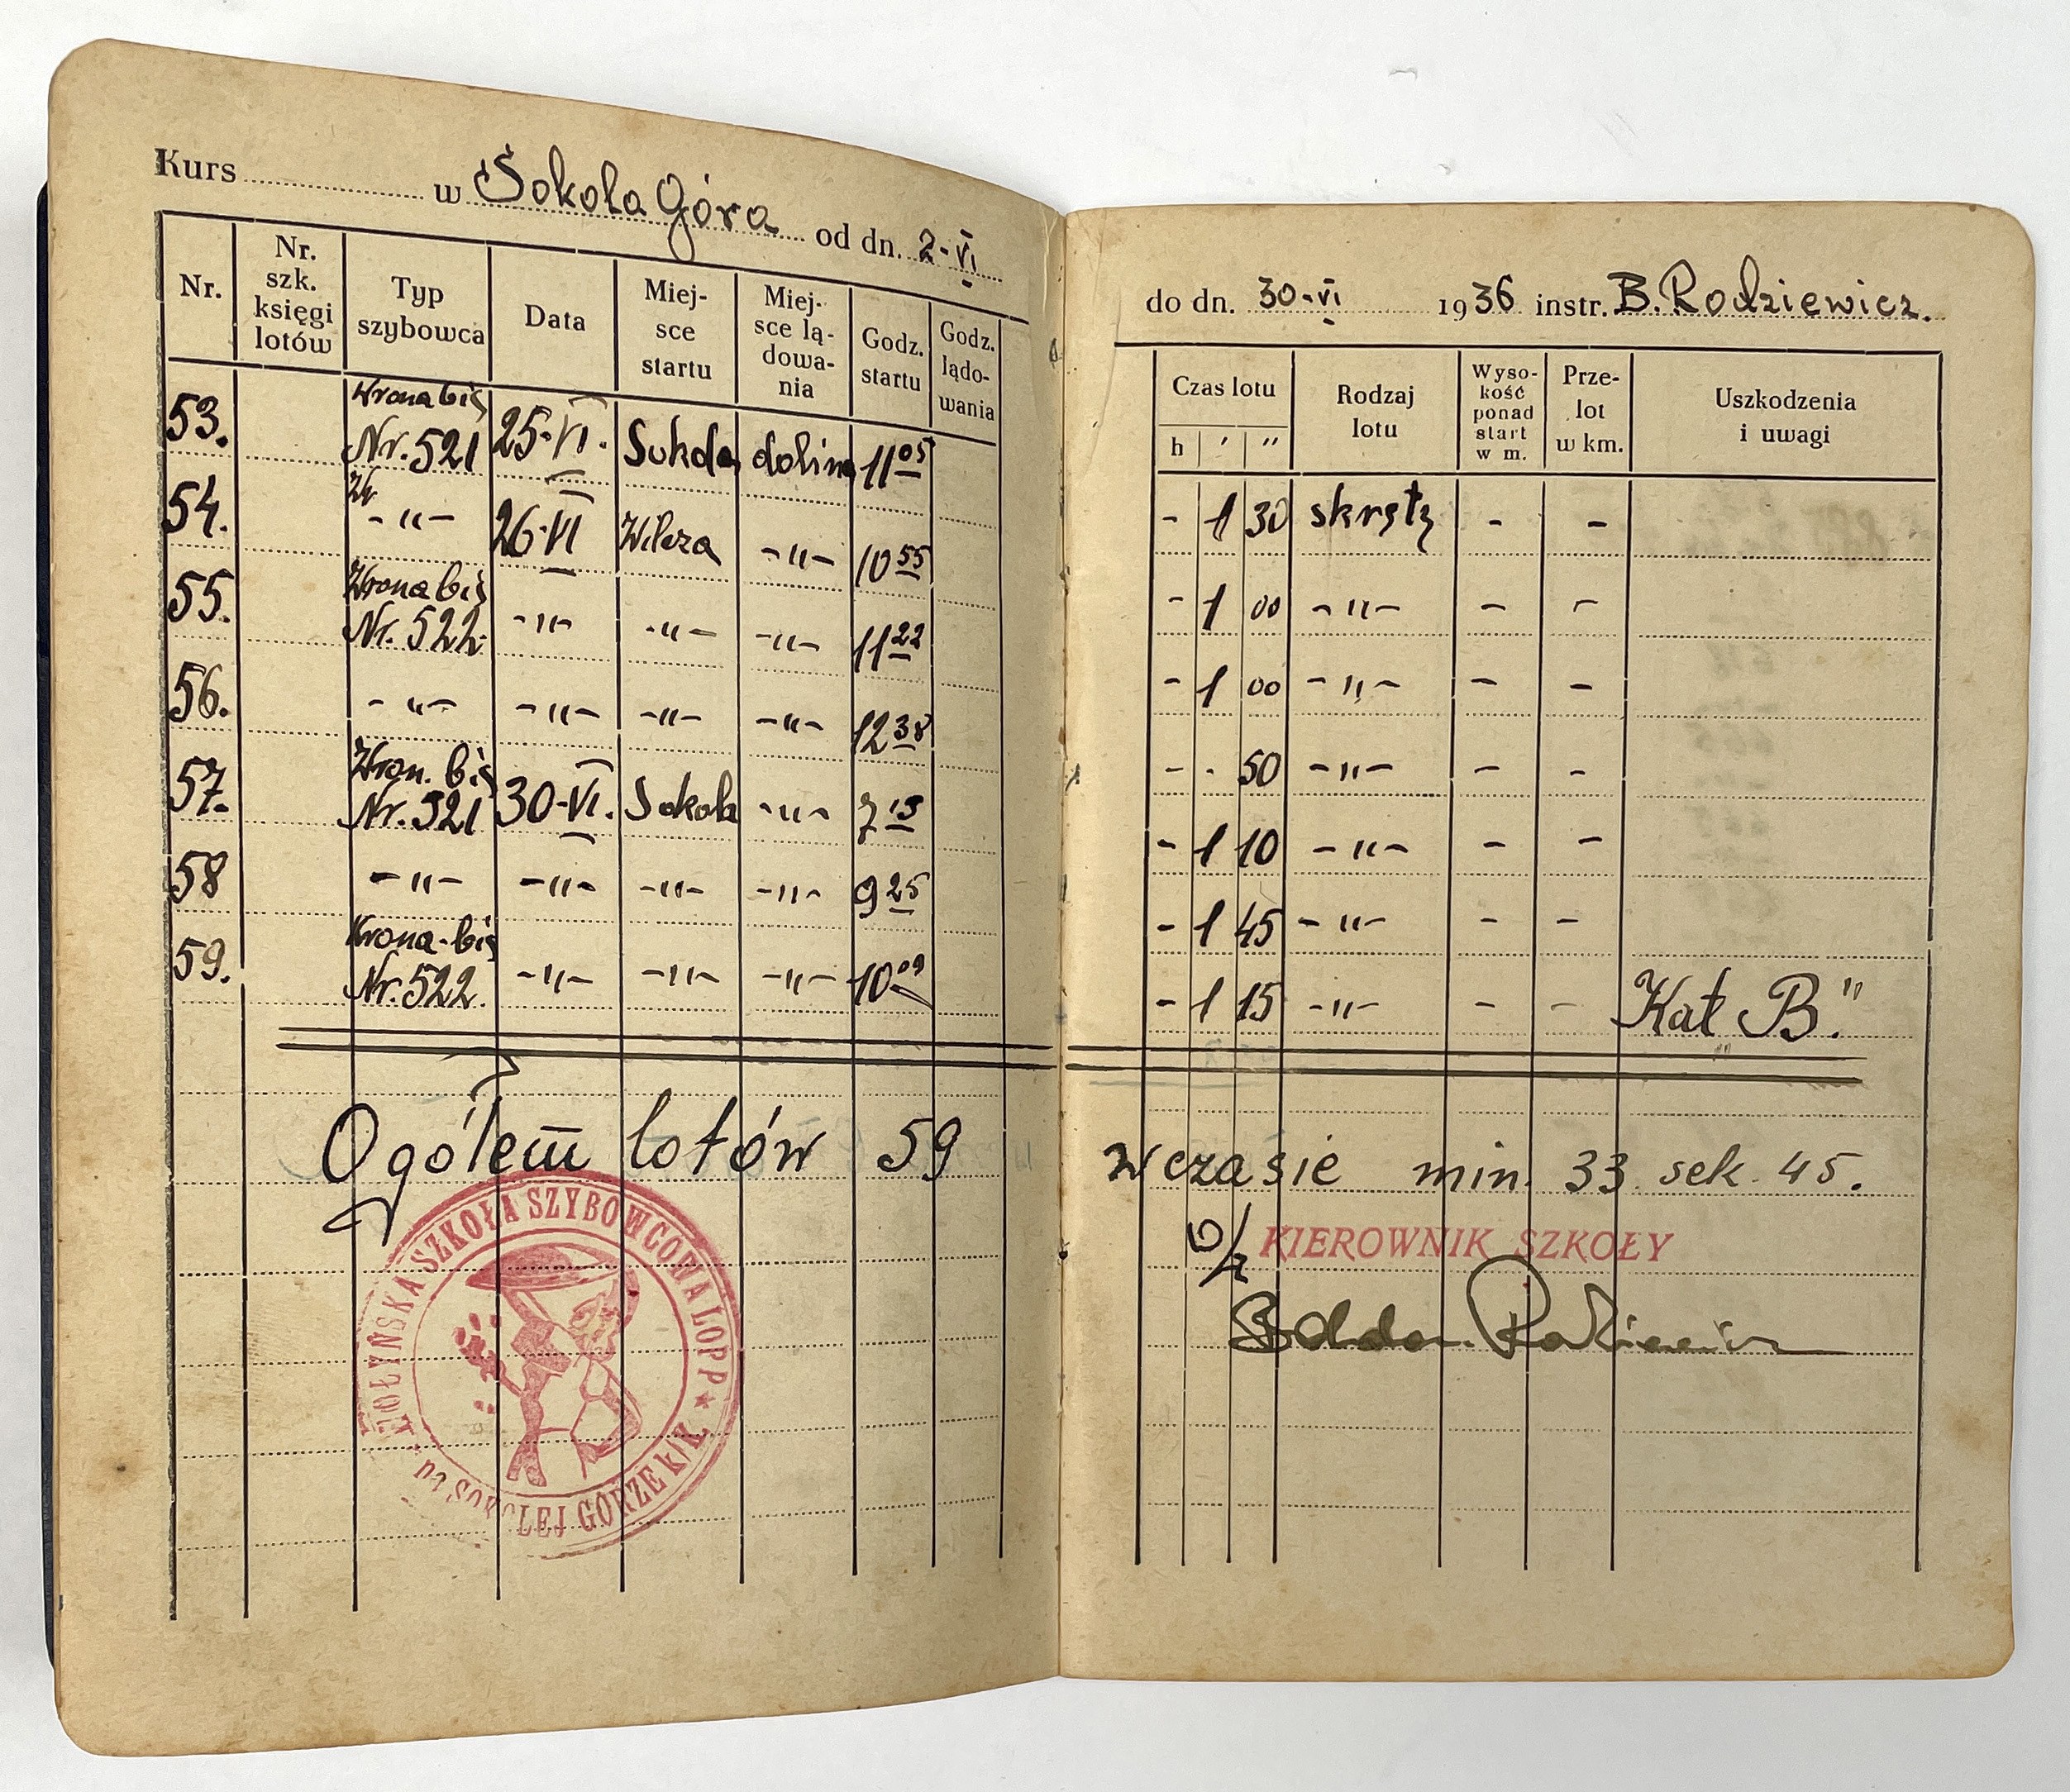 Kurs w Sokola Góra od dn. 2-VI
Nr. Nr. szk. księgi lotów Typ szybowca Data Miejsce startu Miejsce lądowania Godz. startu Godz. lądowania
Wrona bis
53. Nr. 521 25-VI. Sokola dolina 11 05
54. -"- 26-VI Wilcza -"- 10 55
Wrona bis
55. Nr. 522 -"- -"- -"- 11 22
56. -"- -"- -"- -"- 12 38
Wron. bis
57. Nr. 521 30-VI. Sokola -"- 7 15
58 -"- -"- -"- -"- 9 25
Wrona-bis
59. Nr. 522. -"- -"- -"- 10 09
Ogółem lotów 59
WOŁYŃSKA SZKOŁA SZYBOWCOWA LOPP ★
na SOKOLEJ GÓRZE k/K.
do dn. 30-VI 1936 instr. B. Rodziewicz.
Czas lotu h ′ ″ Rodzaj lotu Wysokość ponad start w m. Przelot w km. Uszkodzenia i uwagi
- 1 30 skręty - -
- 1 00 -"- - -
- 1 00 -"- - -
- - 50 -"- - -
- 1 10 -"- - -
- 1 45 -"- - -
- 1 15 -"- - - Kat „B."
W czasie min. 33 sek. 45.
KIEROWNIK SZKOŁY